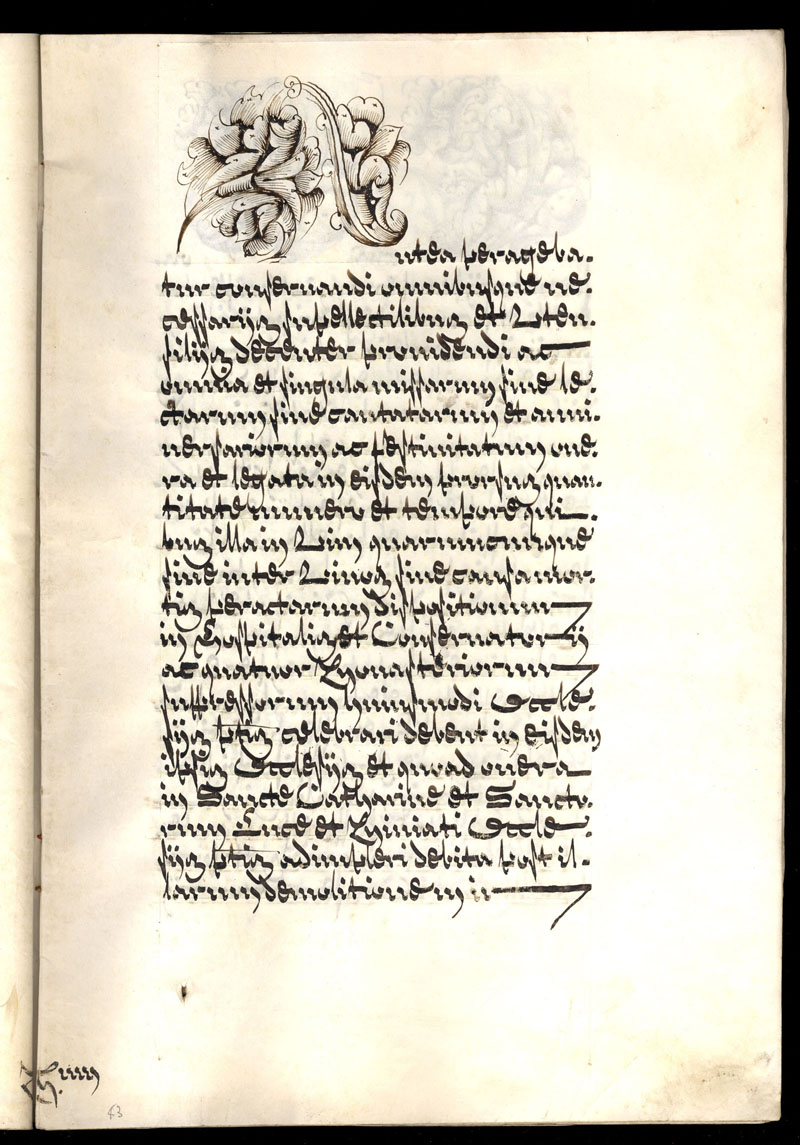 Antea perageba-
tur conseruandi omnibusque ne-
cessarijs supellectilibus et Uten-
silijs decenter prouidendi ac
omnia et singula missarum siue le-
ctarum siue cantatarum et anni-
uersariorum ac festiuitatum one-
ra et legata in eisdem prorsus quan-
titate numero et tempore qui-
bus illa in Uim quarumcunque
siue inter Uiuos siue causa mor-
tis peractarum dispositionum
in Hospitalis et Conseruatorij
ac quatuor Monasteriorum
suppressorum huiusmodi Eccle-
sijs ptis celebrari debent in eisdem
ipsis Ecclesijs et quoad onera
in Sancte Catharine et Sancto-
rum Luce et Miniati Eccle-
sijs ptis adimpleri debita post il-
larum demolitionem in
63